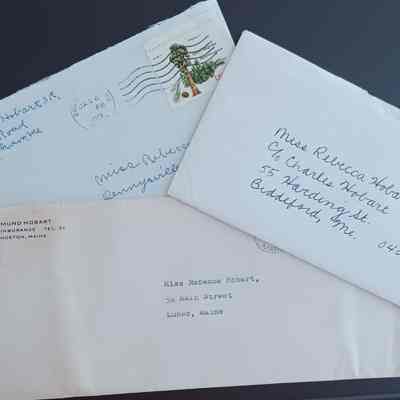 Road
Miss Rebecca
Dennysville
Miss Rebecca Hobart
C/o Charles Hobart
55 Harding St.
Biddeford, Me. 040
MUND HOBART
INSURANCE TEL. 21
MAINE
Miss Rebecca Hobart,
Main Street
Lubec, Maine